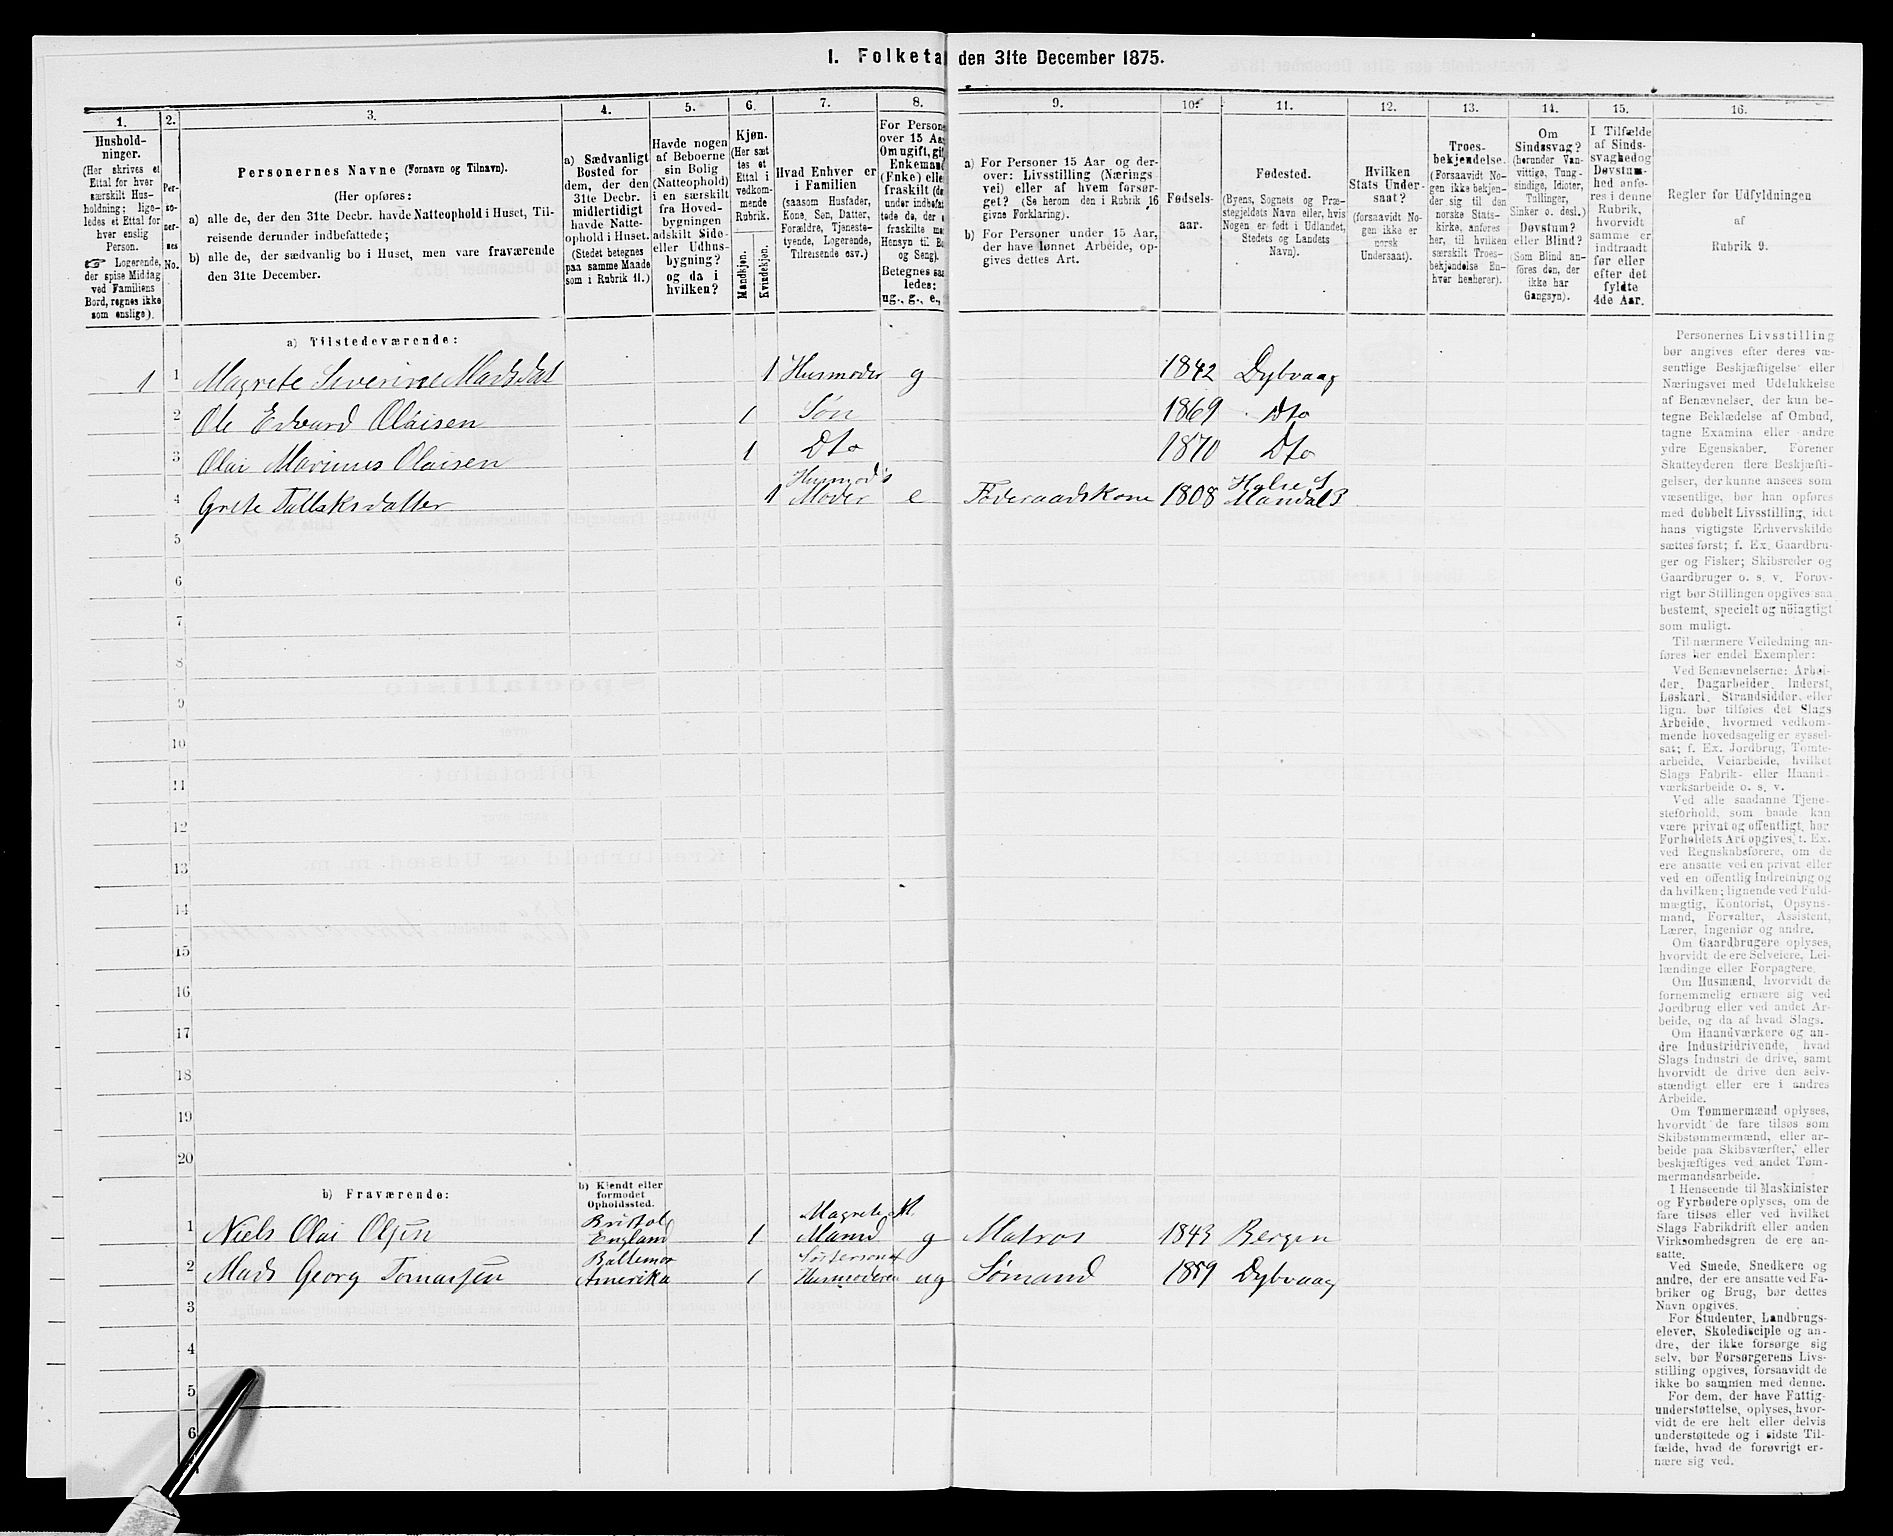 I. Folketal den 31te December 1875.
1.
2.
3.
4.
5.
6.
7.
8.
9.
10.
11.
12.
13.
14.
15.
16.
Hushold-
ninger.
(Her skrives et
Ettal for hver
særskilt Hus-
holdning; lige-
ledes et Ettal for
hver enslig
Person.
☞ Logerende,
der spise Middag
ved Familiens
Bord, regnes ikke
som enslige).
Per-
so-
ner-
nes
No.
Personernes Navne (Fornavn og Tilnavn).
(Her opføres:
a) alle de, der den 31te Decbr. havde Natteophold i Huset, Til-
reisende derunder indbefattede;
b) alle de, der sædvanlig bo i Huset, men vare fraværende
den 31te December.
a) Sædvanligt
Bosted for
dem, der den
31te Decbr.
midlertidigt
havde Natte-
ophold i Huset.
(Stedet betegnes
paa samme Maade
som i Rubrik 11.)
Havde nogen
af Beboerne
sin Bolig
(Natteophold)
i en særskilt
fra Hoved-
bygningen
adskilt Side-
eller Udhus-
bygning?
og da i
hvilken?
Kjøn.
(Her sæt
tes et
Ettal i
vedkom-
mende
Rubrik.
Mandkjøn.
Kvindekjøn.
Hvad Enhver er
i Familien
(saasom Husfader,
Kone, Søn, Datter,
Forældre, Tjeneste-
tyende, Logerende,
Tilreisende osv.)
For Persone
over 15 Aar
Om ugift, gift
Enkemand
(Enke) elle
fraskilt (de
under indbefat
tede de, der e
fraskilte me
Hensyn til Bo
og Seng).
Betegnes saa
ledes:
ug., g., e.,
a) For Personer 15 Aar og der-
over: Livsstilling (Nærings
vei) eller af hvem forsør-
get? (Se herom den i Rubrik 16
givne Forklaring).
b) For Personer under 15 Aar,
der have lønnet Arbeide, op-
gives dettes Art.
Fødsels-
aar.
Fødested.
(Byens, Sognets og Præ-
stegjeldets Navn eller, hvis
Nogen er født i Udlandet,
Stedets og Landets
Navn).
Hvilken
Stats Under-
saat?
(forsaavidt No-
gen ikke er
norsk
Undersaat).
Troes-
bekjendelse.
(Forsaavidt No-
gen ikke bekjen-
der sig til den
norske Stats-
kirke, anføres
her, til hvilken
særskilt Troes-
bekjendelse En-
hver henhører).
Om
Sindssvag?
(herunder Van-
vittige, Tung-
sindige, Idioter,
Tullinger,
Sinker o. desl.)
Døvstum?
eller Blind?
(Som Blind an-
føres den, der
ikke har
Gangsyn).
I Tilfælde
af Sinds-
svaghed og
Døvstum-
hed anfø-
res i denne
Rubrik,
hvorvidt
samme er
indtraadt
før eller
efter det
fyldte
4de Aar.
Regler for Udfyldningen
af
Rubrik 9.
a) Tilstedeværende:
1 1 Magrete Severine Madsdat 1 Husmoder g 1842 Dybvaag
2 Ole Edvard Olaisen 1 Søn 1869 Dto
3 Olai Marinus Olaisen 1 Dto 1870 Dto
4 Grete Tallaksdatter 1 Husmod's Moder e Føderaadskone 1808 Halse S Mandal P
5
6
7
8
9
10
11
12
13
14
15
16
17
18
19
20
b) Fraværende:
b) Kjendt eller
formodet
Opholdssted.
1 Niels Olai Olsen Bristol England 1 Magrete M. Mand g Matros 1843 Bergen
2 Mads Georg Tomassen Baltemor Amerika 1 Søstersøn af Husmoderen ug Sømand 1859 Dybvaag
3
4
5
6
Personernes Livsstilling
bør angives efter deres væ-
sentlige Beskjæftigelse eller
Næringsvei med Udelukkelse
af Benævnelser, der kun be-
tegne Beklædelse af Ombud,
tagne Examina eller andre
ydre Egenskaber. Forener
Skatteyderen flere Beskjæfti-
gelser, der kunne ansees som
væsentlige, bør han opføres
med dobbelt Livsstilling, idet
hans vigtigste Erhvervskilde
sættes først; f. Ex. Gaardbru-
ger og Fisker; Skibsreder og
Gaardbruger o. s. v. Forøv-
rigt bør Stillingen opgives saa
bestemt, specielt og nöiagtigt
som muligt.
Til nærmere Veiledning an-
føres her endel Exempler:
Ved Benævnelserne: Arbei-
der, Dagarbeider, Inderst,
Løskarl, Strandsidder eller
lign. bør tilføies det Slags
Arbeide, hvormed vedkom-
mende hovedsagelig er syssel-
sat; f. Ex. Jordbrug, Tomte-
arbeide, Veiarbeide, hvilket
Slags Fabrik- eller Haand-
værksarbeide o. s. v.
Ved alle saadanne Tjene-
steforhold, som baade kan
være privat og offentligt, bør
Forholdets Art opgives, t. Ex.
ved Regnskabsførere, om de
ere ansatte ved en privat eller
ved en offentlig Indretning og
da hvilken; lignende ved Fuld-
mægtig, Kontorist, Opsyns-
mand, Forvalter, Assistent,
Lærer, Ingeniør og andre.
Om Gaardbrugere oplyses,
hvorvidt de ere Selveiere, Lei-
lændinge eller Forpagtere.
Om Husmænd, hvorvidt de
fornemmelig ernære sig ved
Jordbrug eller ved andet Ar-
beide, og da af hvad Slags.
Om Haandværkere og an-
dre Industridrivende, hvad
Slags Industri de drive, samt
hvorvidt de drive den selv-
stændigt eller ere i andres
Arbeide.
Om Tømmermænd oplyses,
hvorvidt de fare tilsøs som
Skibstømmermænd, eller ar-
beide paa Skibsværfter, eller
beskjæftiges ved andet Tøm-
mermandsarbeide.
I Henseende til Maskinister
og Fyrbødere oplyses, om de
fare tilsøs eller ved hvilket
Slags Fabrikdrift eller anden
Virksomhedsgren de ere an-
satte.
Ved Smede, Snedkere og
andre, der ere ansatte ved Fa-
briker og Brug, bør dettes
Navn opgives.
For Studenter, Landbrugs-
elever, Skoledisciple og an-
dre, der ikke forsørge sig
selv, bør Forsørgerens Livs-
stilling opgives, forsaavidt de
ikke bo sammen med denne.
For dem, der have Fattig-
understøttelse, oplyses, hvor-
vidt de ere helt eller delvis
understøttede og i sidste Til-
fælde, hvad de forøvrigt er-
nære sig ved.